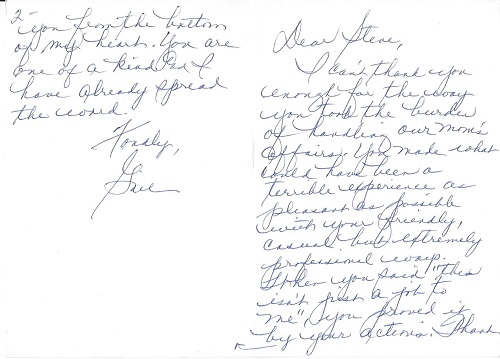 Dear Steve,
I can't thank you
enough for the way
you took the burden
of handling our Mom's
affairs. You made what
could have been a
terrible experience as
pleasant as possible
with your friendly,
casual but extremely
professional ways.
When you said "this
isn't just a job to
me", you proved it
by your actions. Thank
2
you from the bottom
of my heart. You are
one of a kind and I
have already spread
the word.
Fondly,
Gail